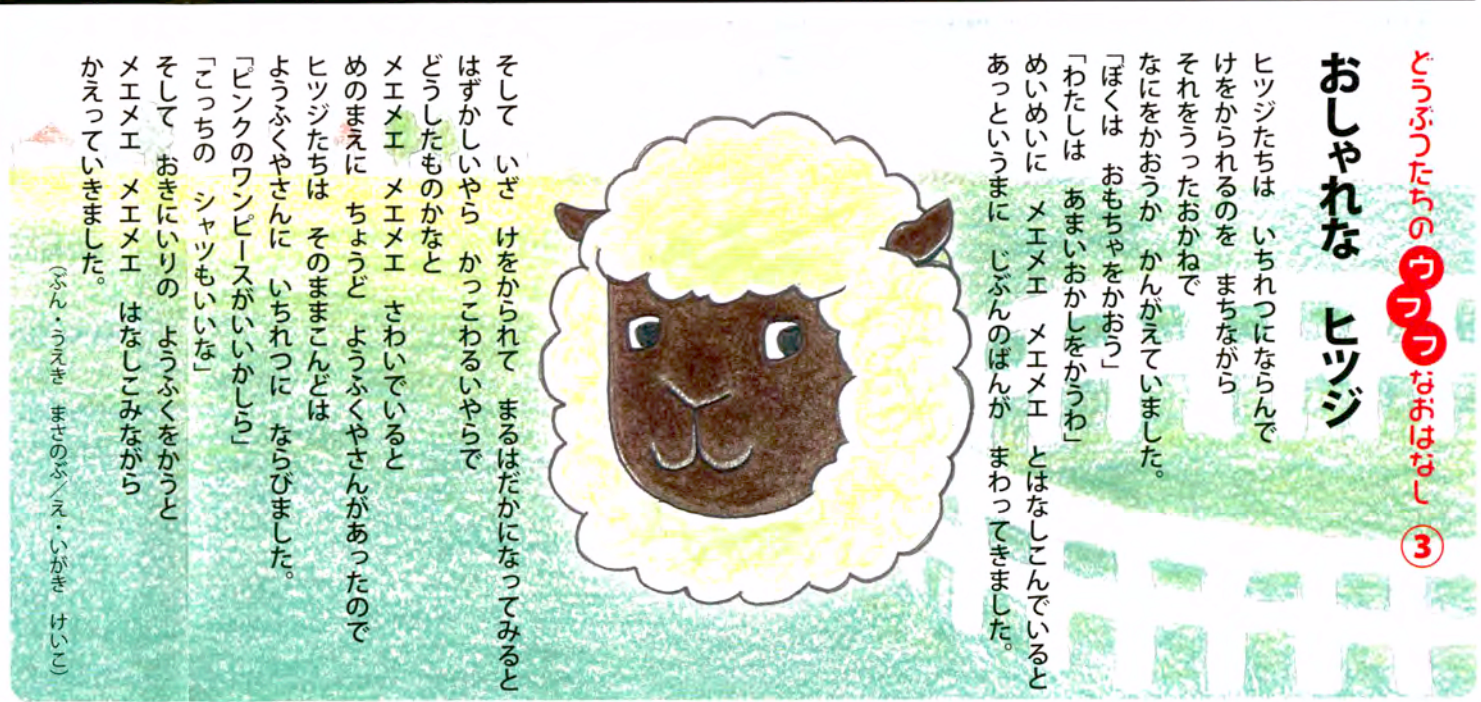 どうぶつたちのウフフなおはなし ③
おしゃれな ヒツジ
ヒツジたちは いちれつにならんで
けをかられるのを まちながら
それをうったおかねで
なにをかおうか かんがえていました。
「ぼくは おもちゃをかおう」
「わたしは あまいおかしをかうわ」
めいめいに メエメエ メエメエ とはなしこんでいると
あっというまに じぶんのばんが まわってきました。
そして いざ けをかられて まるはだかになってみると
はずかしいやら かっこわるいやらで
どうしたものかなと
メエメエ メエメエ さわいでいると
めのまえに ちょうど ようふくやさんがあったので
ヒツジたちは そのままこんどは
ようふくやさんに いちれつに ならびました。
「ピンクのワンピースがいいかしら」
「こっちの シャツもいいな」
そして おきにいりの ようふくをかうと
メエメエ メエメエ はなしこみながら
かえっていきました。
(ぶん・うえき まさのぶ/え・いがき けいこ)